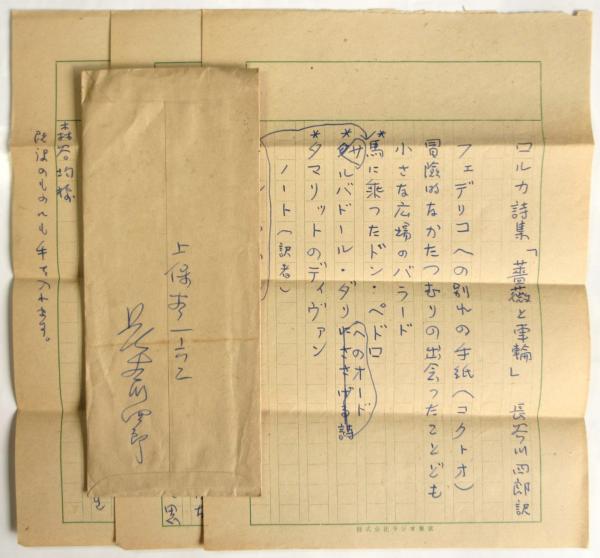 ロルカ詩集「薔薇と車輪」 長谷川四郎訳
フェデリコへの別れの手紙(コクトオ)
冒険的なかたつむりの出会ったことども
小さな広場のバラード
*馬に乗ったドン・ペドロ
*サルバドール・ダリへのオード
にささげる詩
*タマリットのディヴァン
ノート(訳者)
上保
長谷川四郎
森谷均様
のものにも手を入れます。
株式会社ラジオ東京